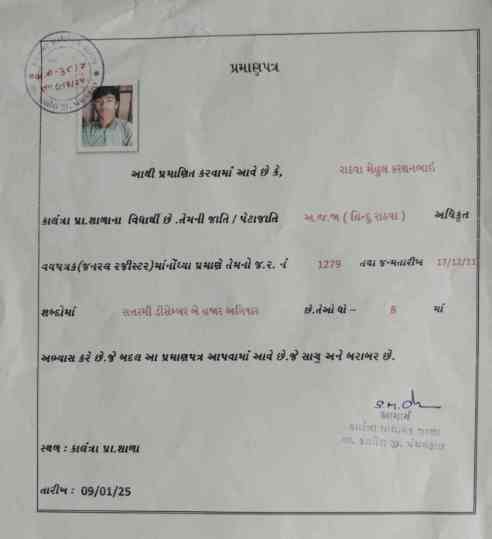 પ્રમાણપત્ર
આથી પ્રમાણિત કરવામાં આવે છે કે, રાઠવા મેહુલ કરશનભાઇ
કાલંત્રા પ્રા.શાળાના વિધાર્થી છે .તેમની જાતિ / પેટાજાતિ અ.જ.જા ( હિન્દુ રાઠવા ) અધિકૃત
વયપત્રક(જનરલ રજીસ્ટર)માંનોંધ્યા પ્રમાણે તેમનો જ.ર. નં 1279 તથા જન્મતારીખ 17/12/11
શબ્દોમાં સત્તરમી ડીસેમ્બર બે હજાર અગિયાર છે.તેઓ ધો – 8 માં
અભ્યાસ કરે છે.જે બદલ આ પ્રમાણપત્ર આપવામાં આવે છે.જે સાચુ અને બરાબર છે.
આચાર્ય
કાલંત્રા પ્રાથમિક શાળા
સ્થળ : કાલંત્રા પ્રા.શાળા
તારીખ : 09/01/25